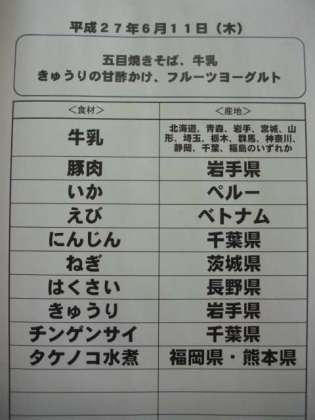 平成27年6月11日（木）
五目焼きそば、牛乳
きゅうりの甘酢かけ、フルーツヨーグルト
＜食材＞ ＜産地＞
牛乳 北海道、青森、岩手、宮城、山
形、埼玉、栃木、群馬、神奈川、
静岡、千葉、福島のいずれか
豚肉 岩手県
いか ペルー
えび ベトナム
にんじん 千葉県
ねぎ 茨城県
はくさい 長野県
きゅうり 岩手県
チンゲンサイ 千葉県
タケノコ水煮 福岡県・熊本県